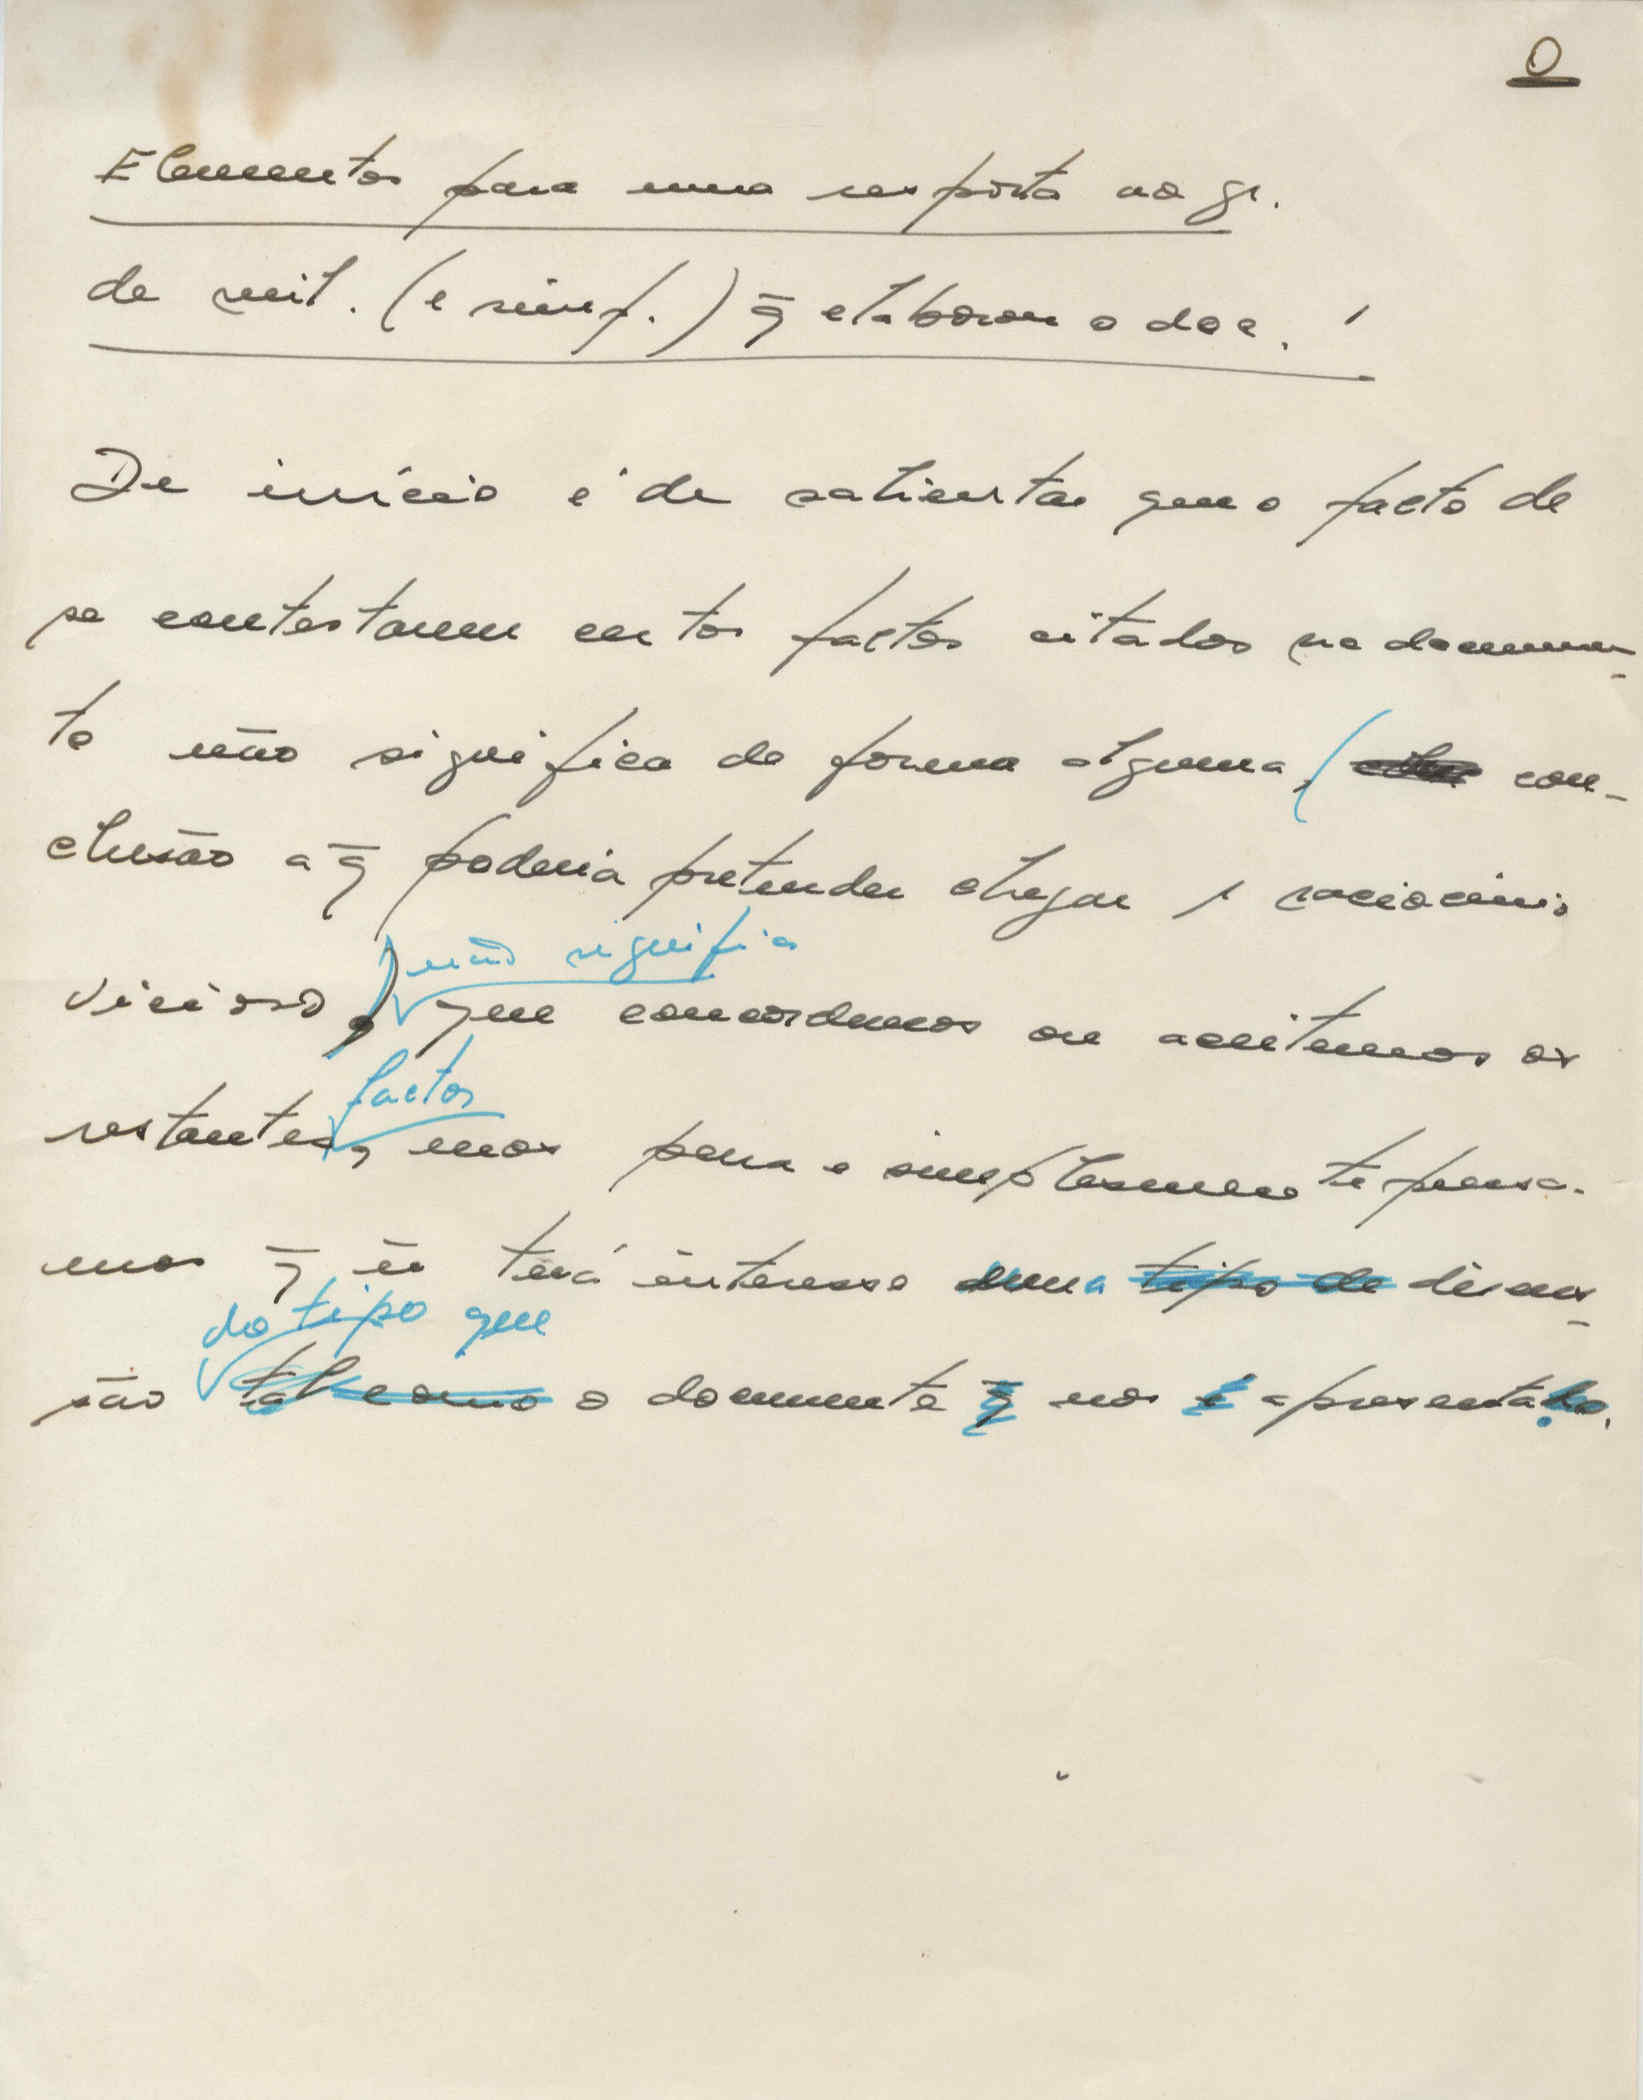 0
Elementos para uma resposta ao gr.
de mil. (e simp.) q̄ elaborou o doc.
De início é de salientar que o facto de
se contestarem certos factos citados no documen-
to não significa de forma alguma, ( con-
clusão a q̄ poderia pretender chegar raciocínio
não significa
vicioso,) que concordemos ou aceitemos os
factos
restantes, mas pura e simplesmente pensa-
mos q̄ ñ terá interesse uma tipo de discus-
do tipo que
são tal como o documento q̄ nos é apresentado.